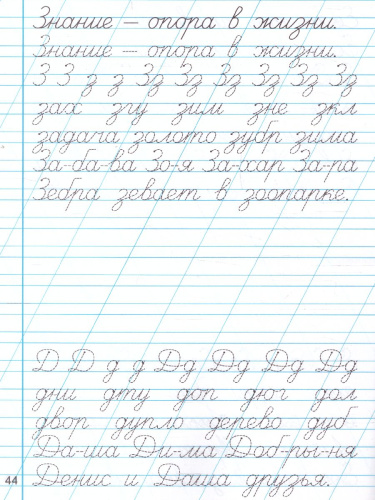 Знание – опора в жизни.
Знание – опора в жизни.
З З з з Зз Зз Зз Зз Зз Зз
зах згу зим зне зкл
задача золото зубр зима
За-ба-ва Зо-я За-хар За-ра
Зебра зевает в зоопарке.
Д Д д д Дд Дд Дд Дд
дни дту доп дюг дол
двор дупло дерево дуб
Да-ша Ди-ма Доб-ры-ня
44 Денис и Даша друзья.